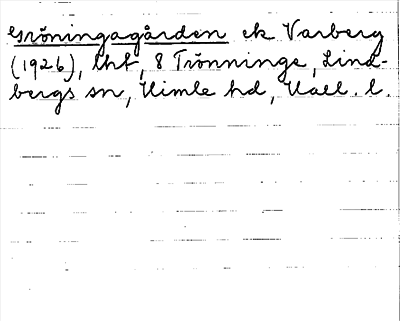 Gröningagården ek Varberg
(1926), lht, 8 Trönninge, Lind-
bergs sn, Himle hd, Hall. l.